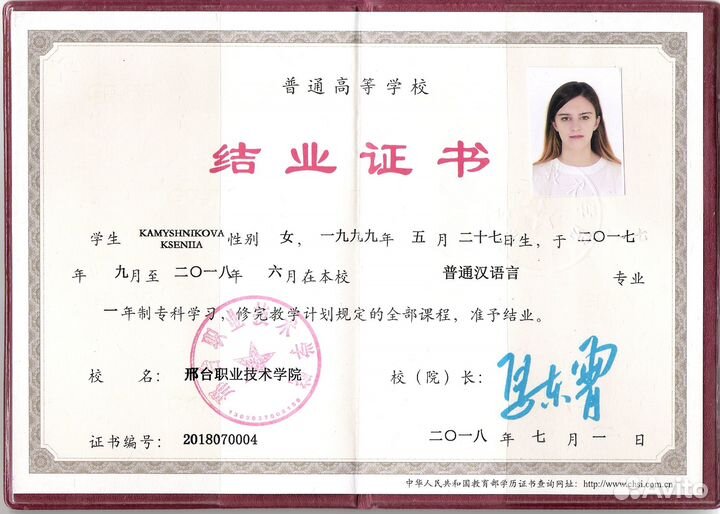 普通高等学校
结业证书
学生 KAMYSHNIKOVA KSENIIA 性别 女，一九九九年 五 月 二十七日生，于 二〇一七
年 九月至 二〇一八年 六月在本校 普通汉语言 专业
一年制专科学习，修完教学计划规定的全部课程，准予结业。
校 名： 邢台职业技术学院 校（院）长：
邢台职业技术学院
证书编号： 2018070004 二〇一八 年 七 月 一 日
中华人民共和国教育部学历证书查询网址： http://www.chsi.com.cn
Avito